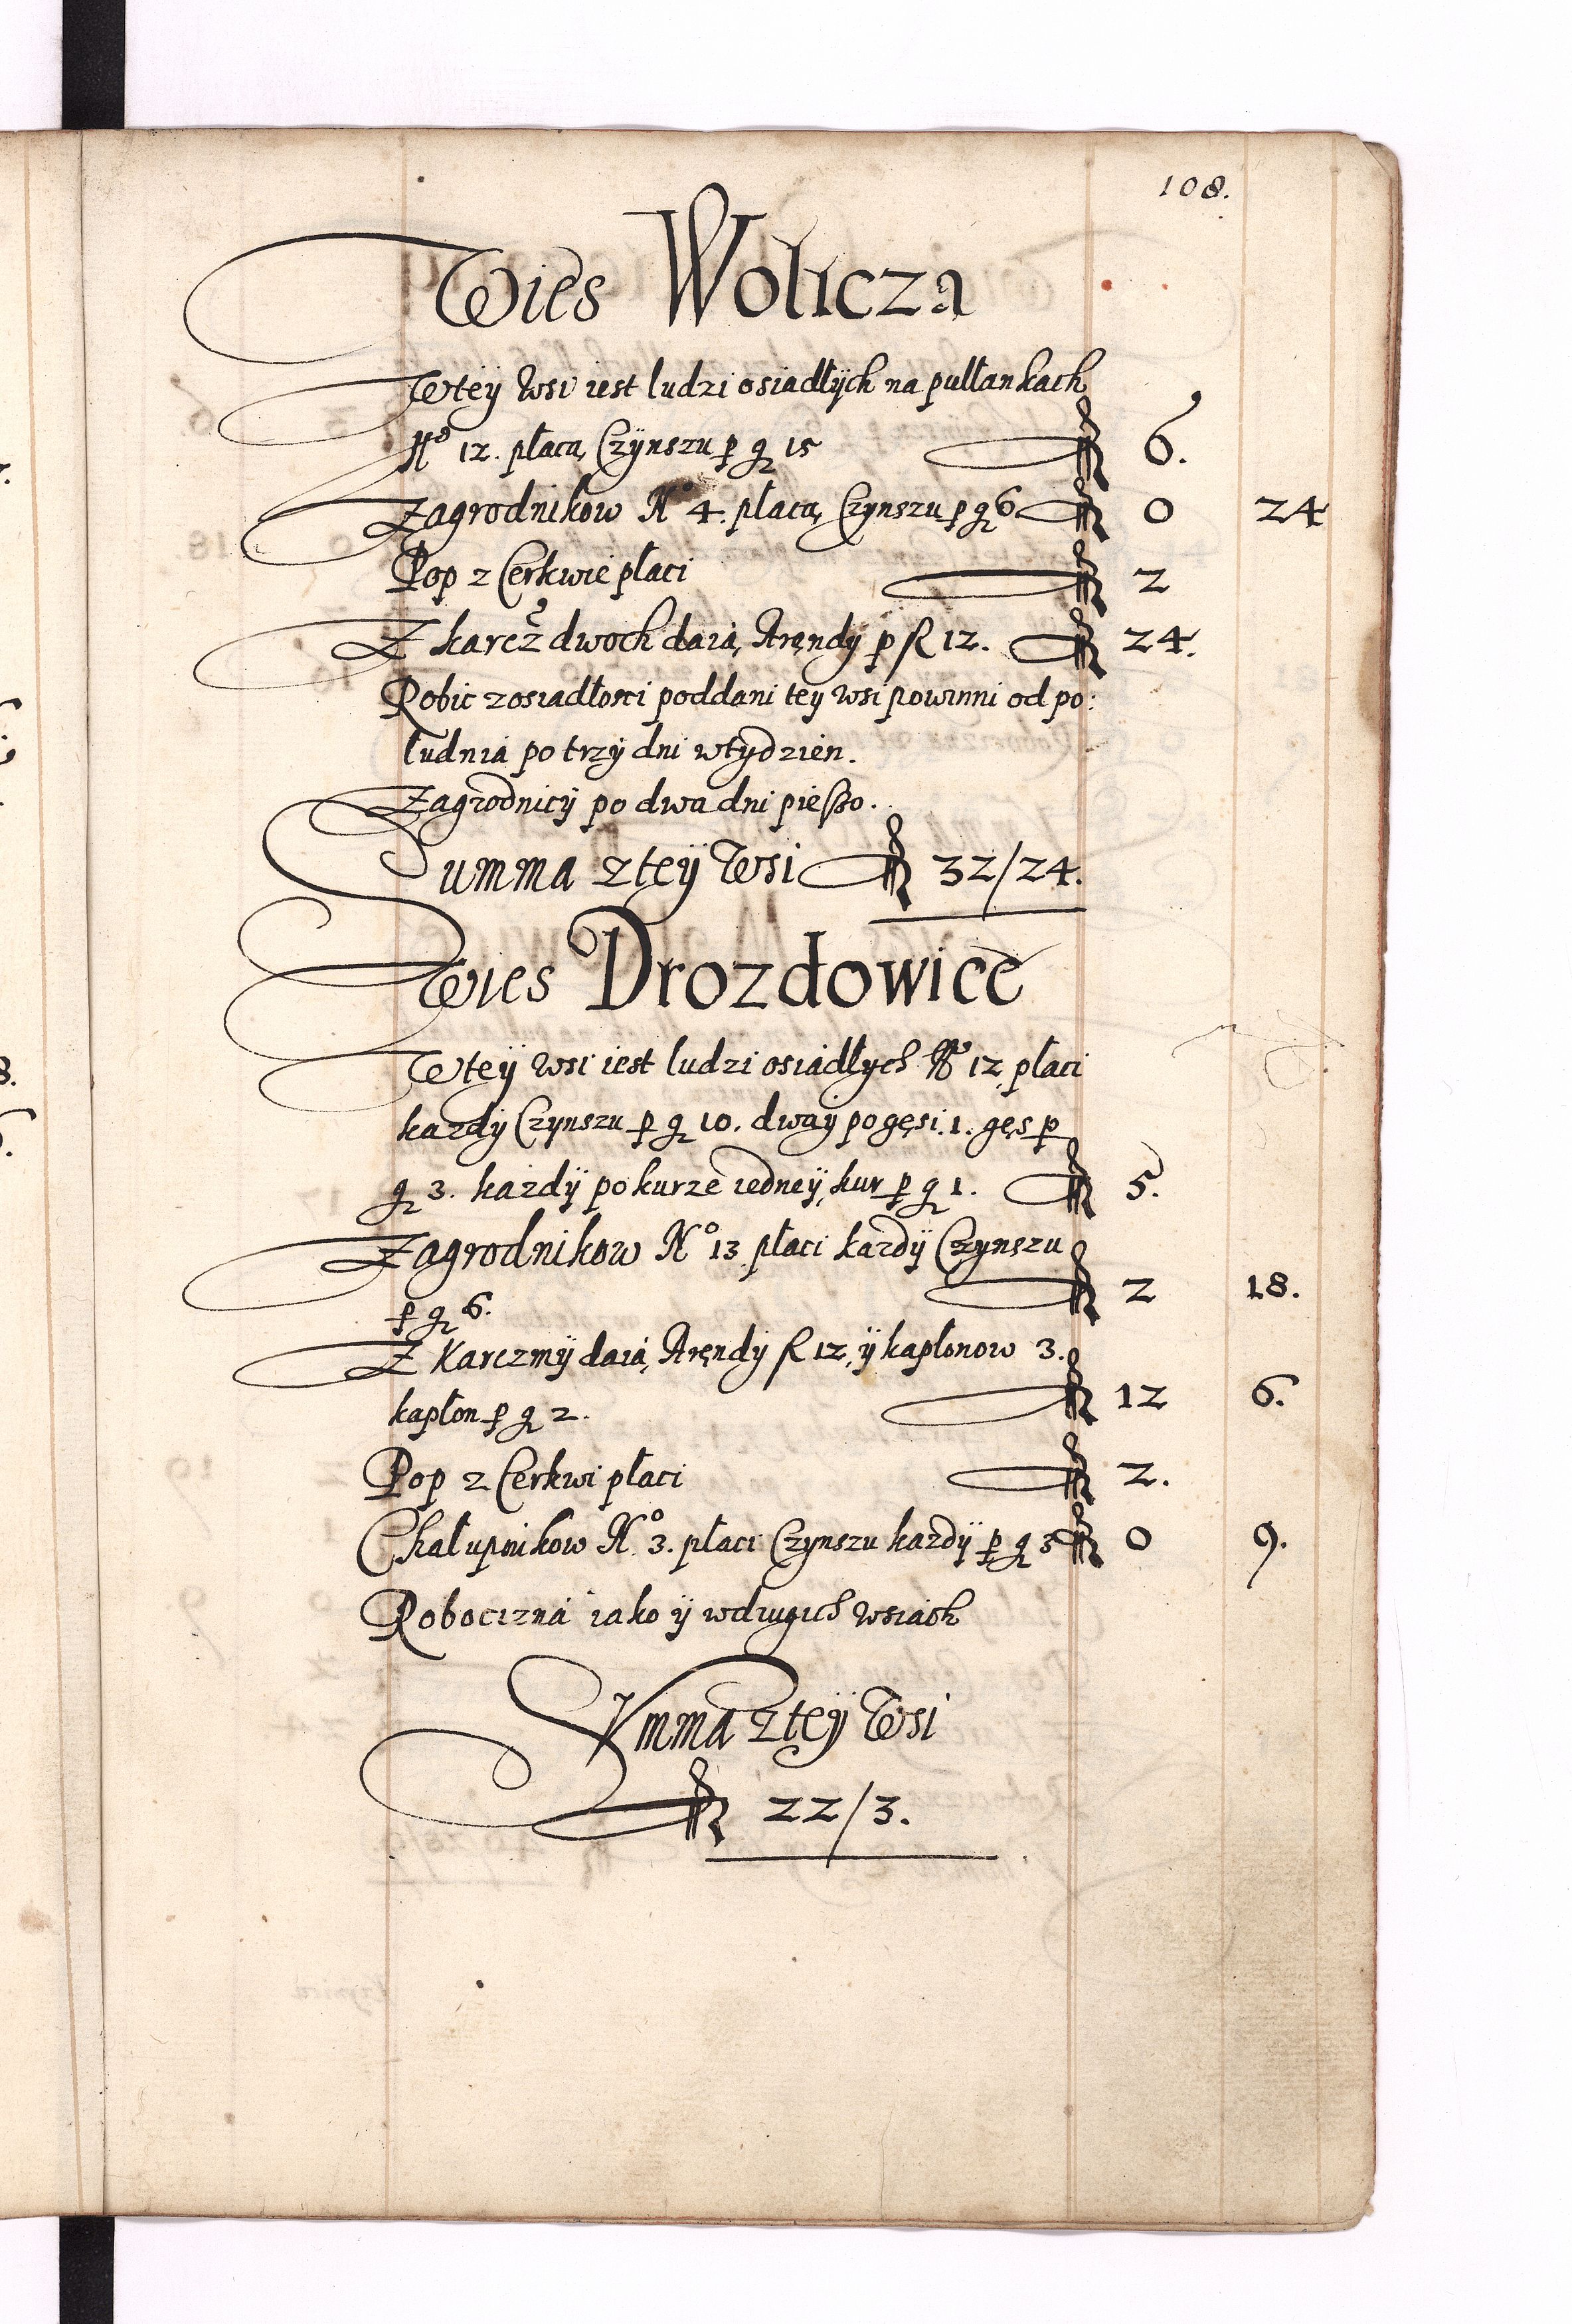 108.
Wies Wolicza
Wteÿ Wsi iest ludzi osiadłÿch na pułłankach
No 12. płacą Czÿnszu p g 15 6.
Zagrodnikow No 4. płacą Czynszu p g 6 0 24
Pop z Cerkwie płaci 2
Z karcz dwoch daią Arędy p fl 12. 24.
Robic zosiadłosci poddani teÿ wsi powinni od po:
ludnia po trzÿ dni wtydzień.
Zagrodnicÿ po dwa dni pieszo.
Summa zteÿ Wsi 32/24.
Wies Drozdowice
Wteÿ wsi iest ludzi osiadłych No 12 płaci
kazdÿ Czynszu p g 10. dwaÿ po gęsi. 1. gęs p
g 3. kazdÿ po kurze iedneÿ, kur p g 1. 5.
Zagrodnikow No 13 płaci kazdÿ Czynszu
p g 6. 2 18.
Z Karczmÿ daią Aręndy fl 12, ÿ kapłonow 3.
kapłon p g 2. 12 6.
Pop z Cerkwi płaci 2.
Chałupnikow No 3. płaci Czynszu kazdÿ p g 3 0 9.
Robocizna iako ÿ wdrugich wsiach
SVmma zteÿ Wsi
22/3.